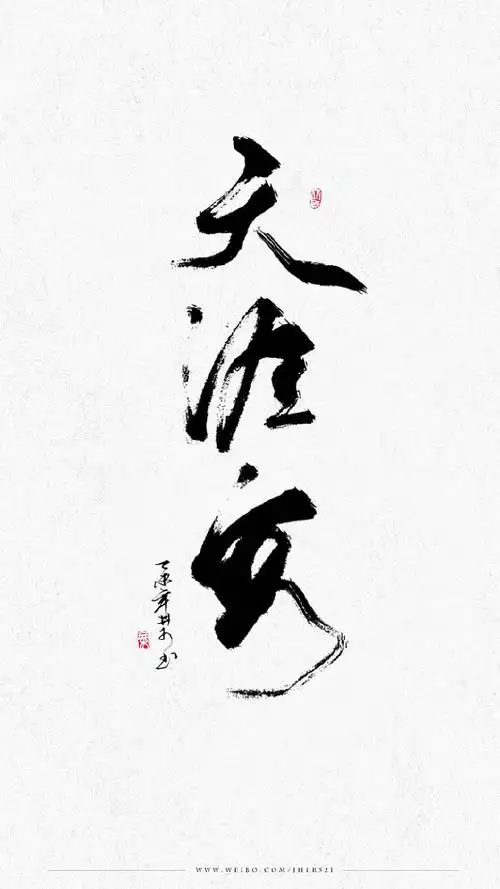 天涯客
WWW.WEIBO.COM/JHER521